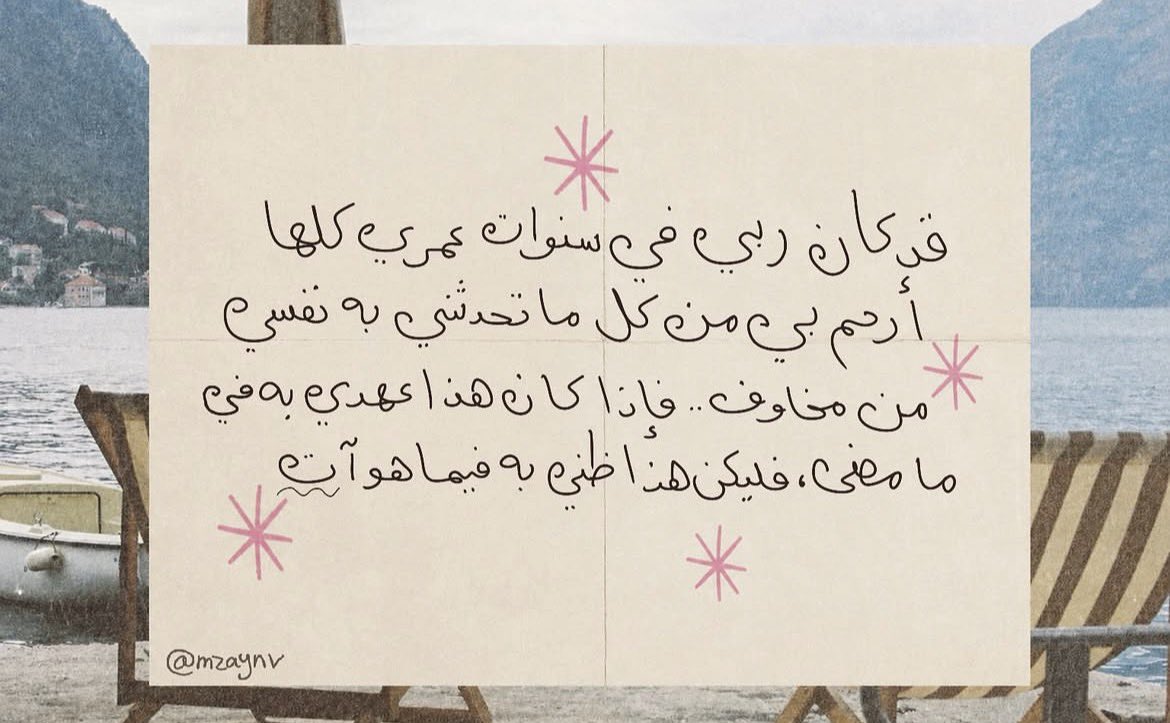 قد كان ربي في سنوات عمري كلها
أرحم بي من كل ما تحدثني به نفسي
من مخاوف.. فإذا كان هذا عهدي به في
ما مضى، فليكن هذا ظني به فيما هو آت
@mzaynv